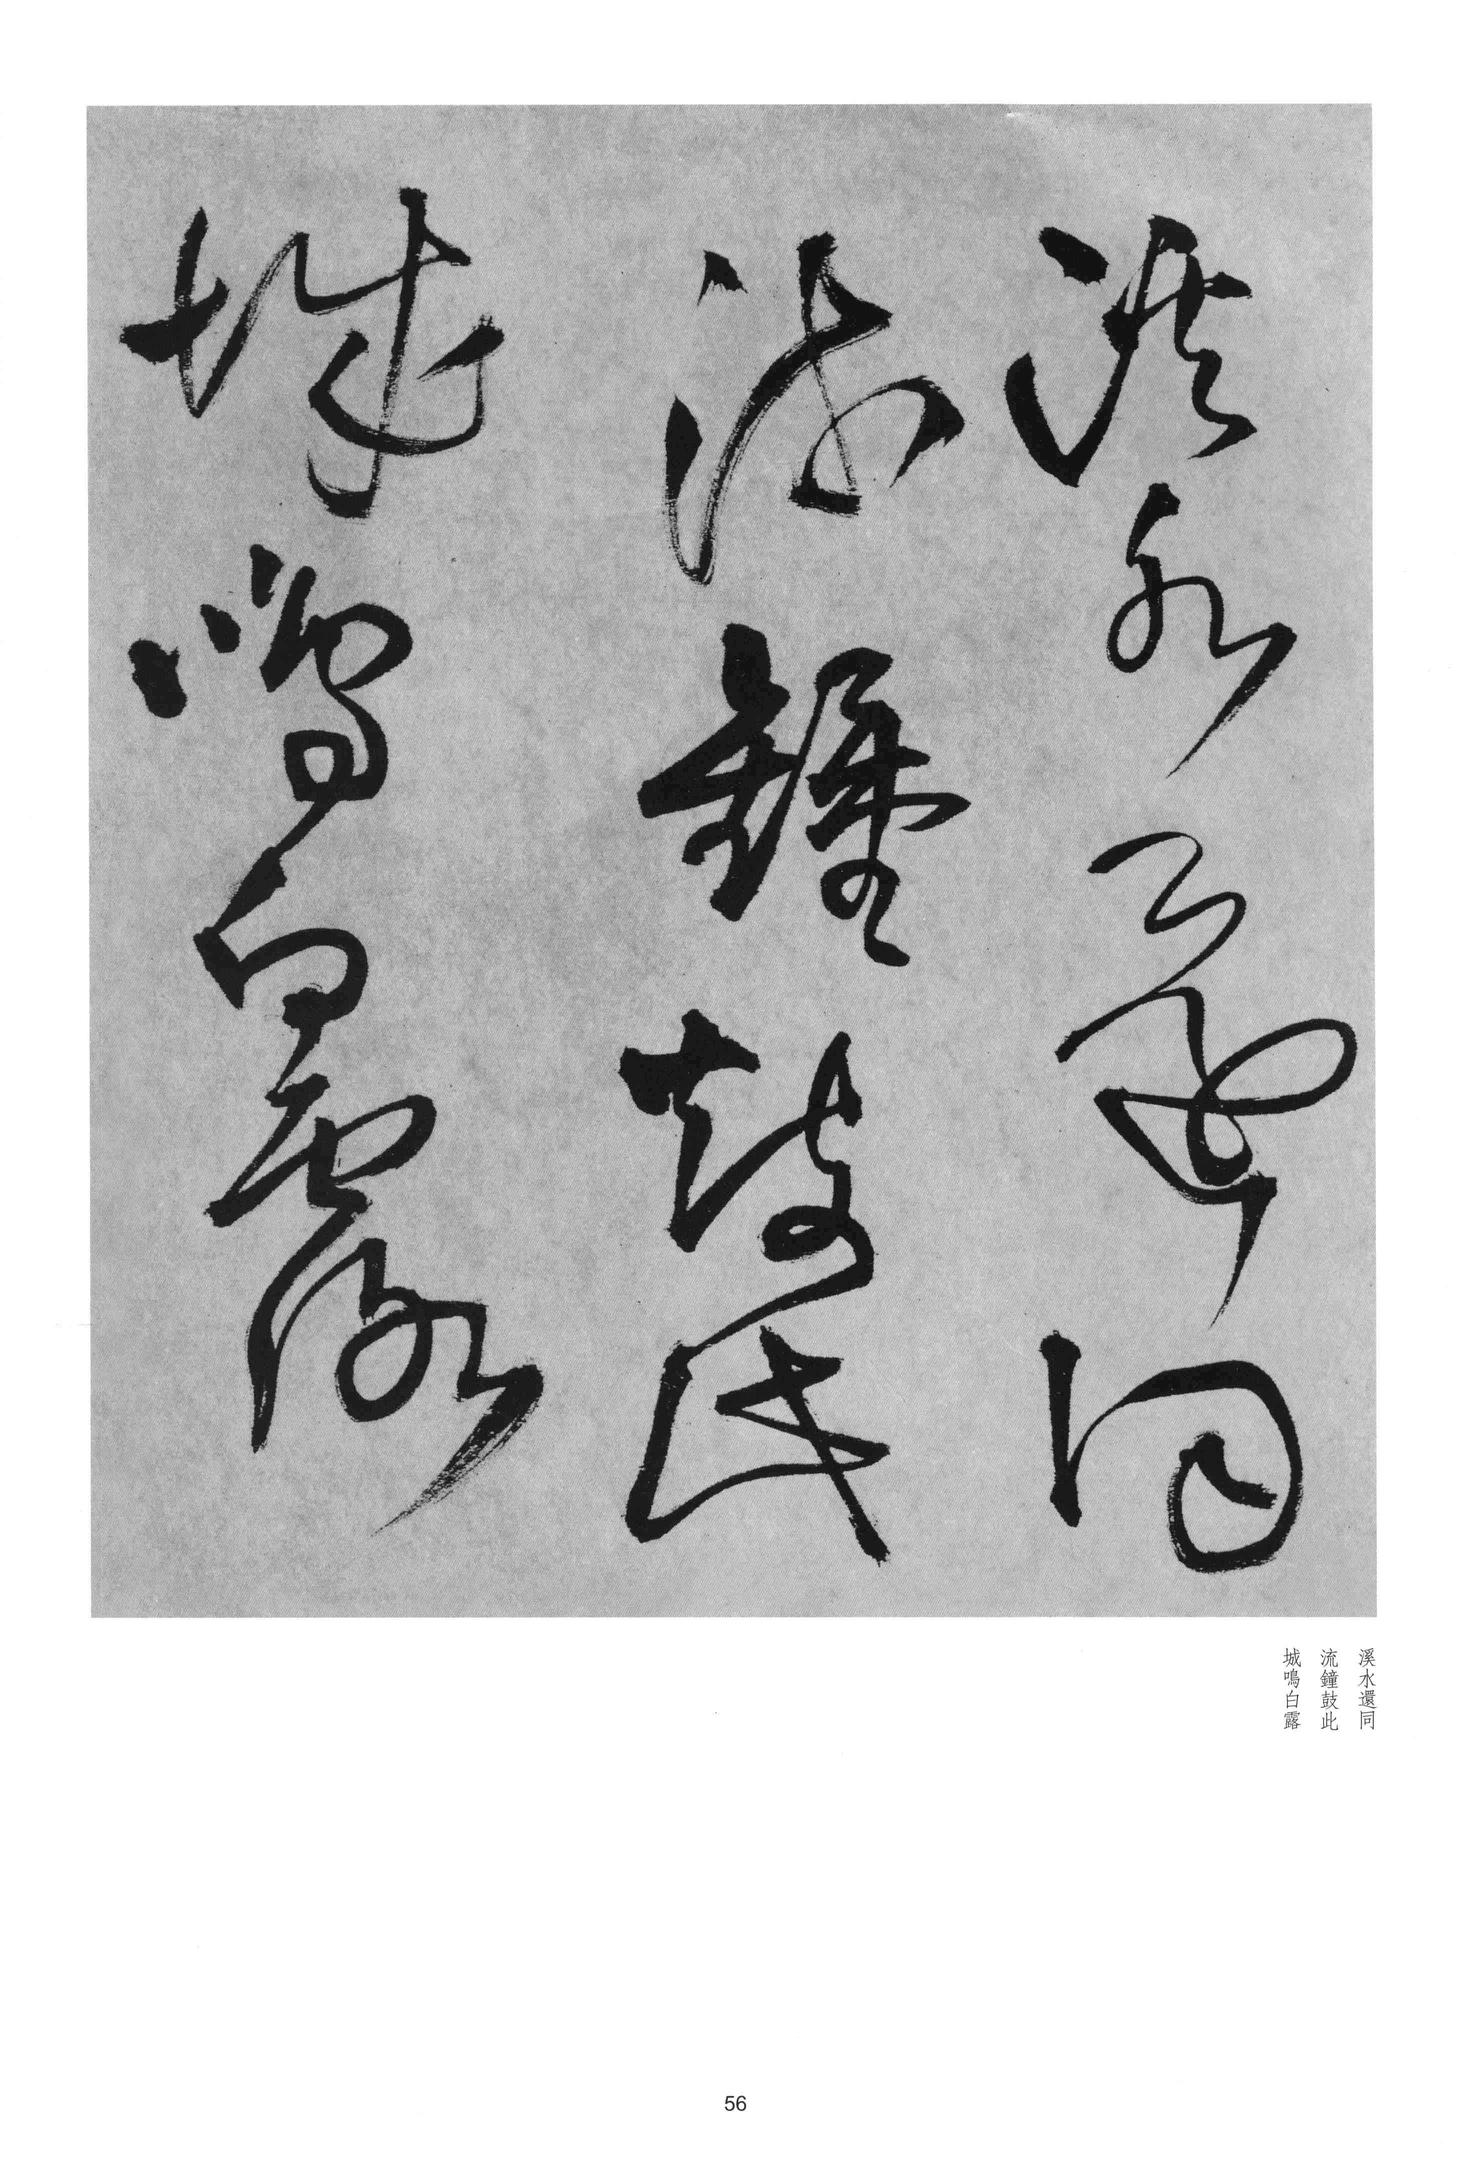 溪水還同
流鐘鼓此
城鳴白露
溪水還同
流鐘鼓此
城鳴白露
56